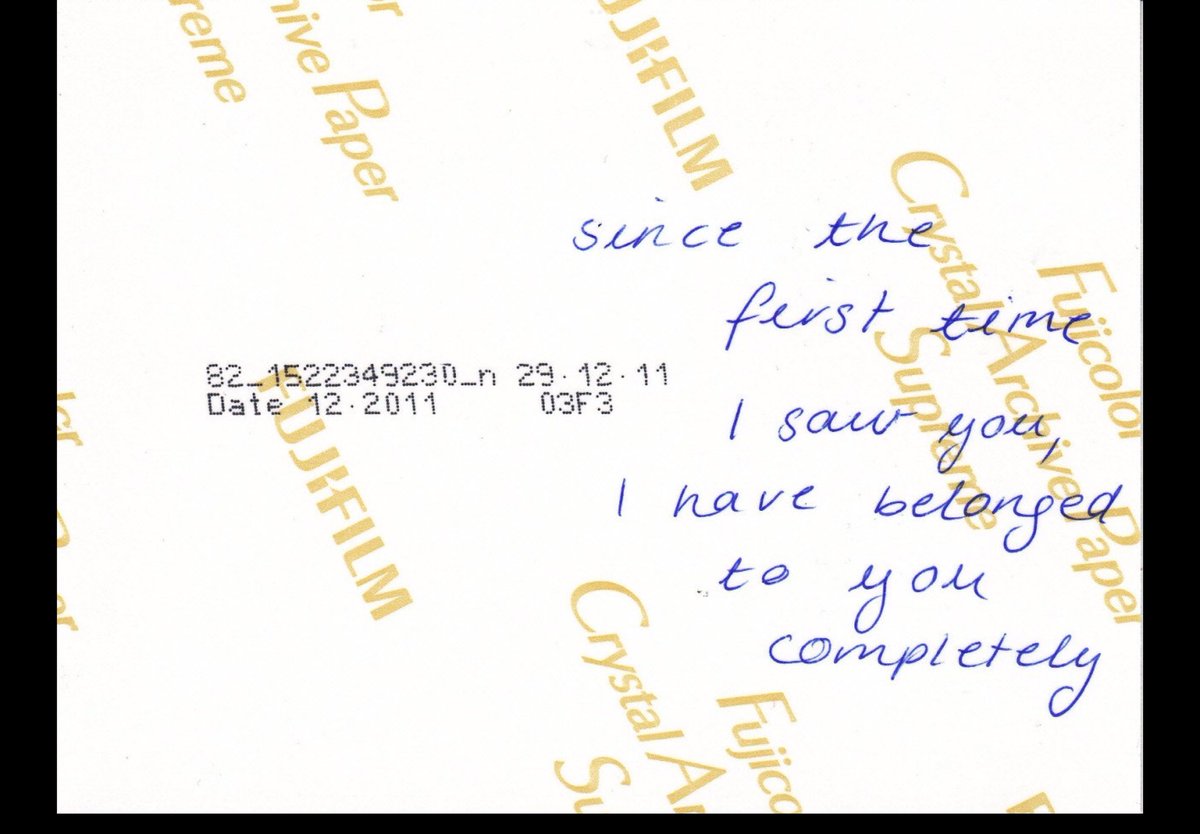 reme
hive Paper
or
FUJIFILM
Crystal Archive Paper
Supreme
Fujicolor
since the
first time
82_1522349230_n 29.12.11
Date 12.2011 03F3
I saw you,
I have belonged
to you
completely
FUJIFILM
Crystal Ar
Su
Fujico